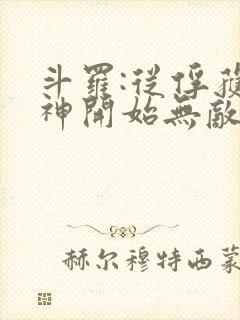 斗羅:從俘獲
神開始無敵
赫尔穆特西蒙